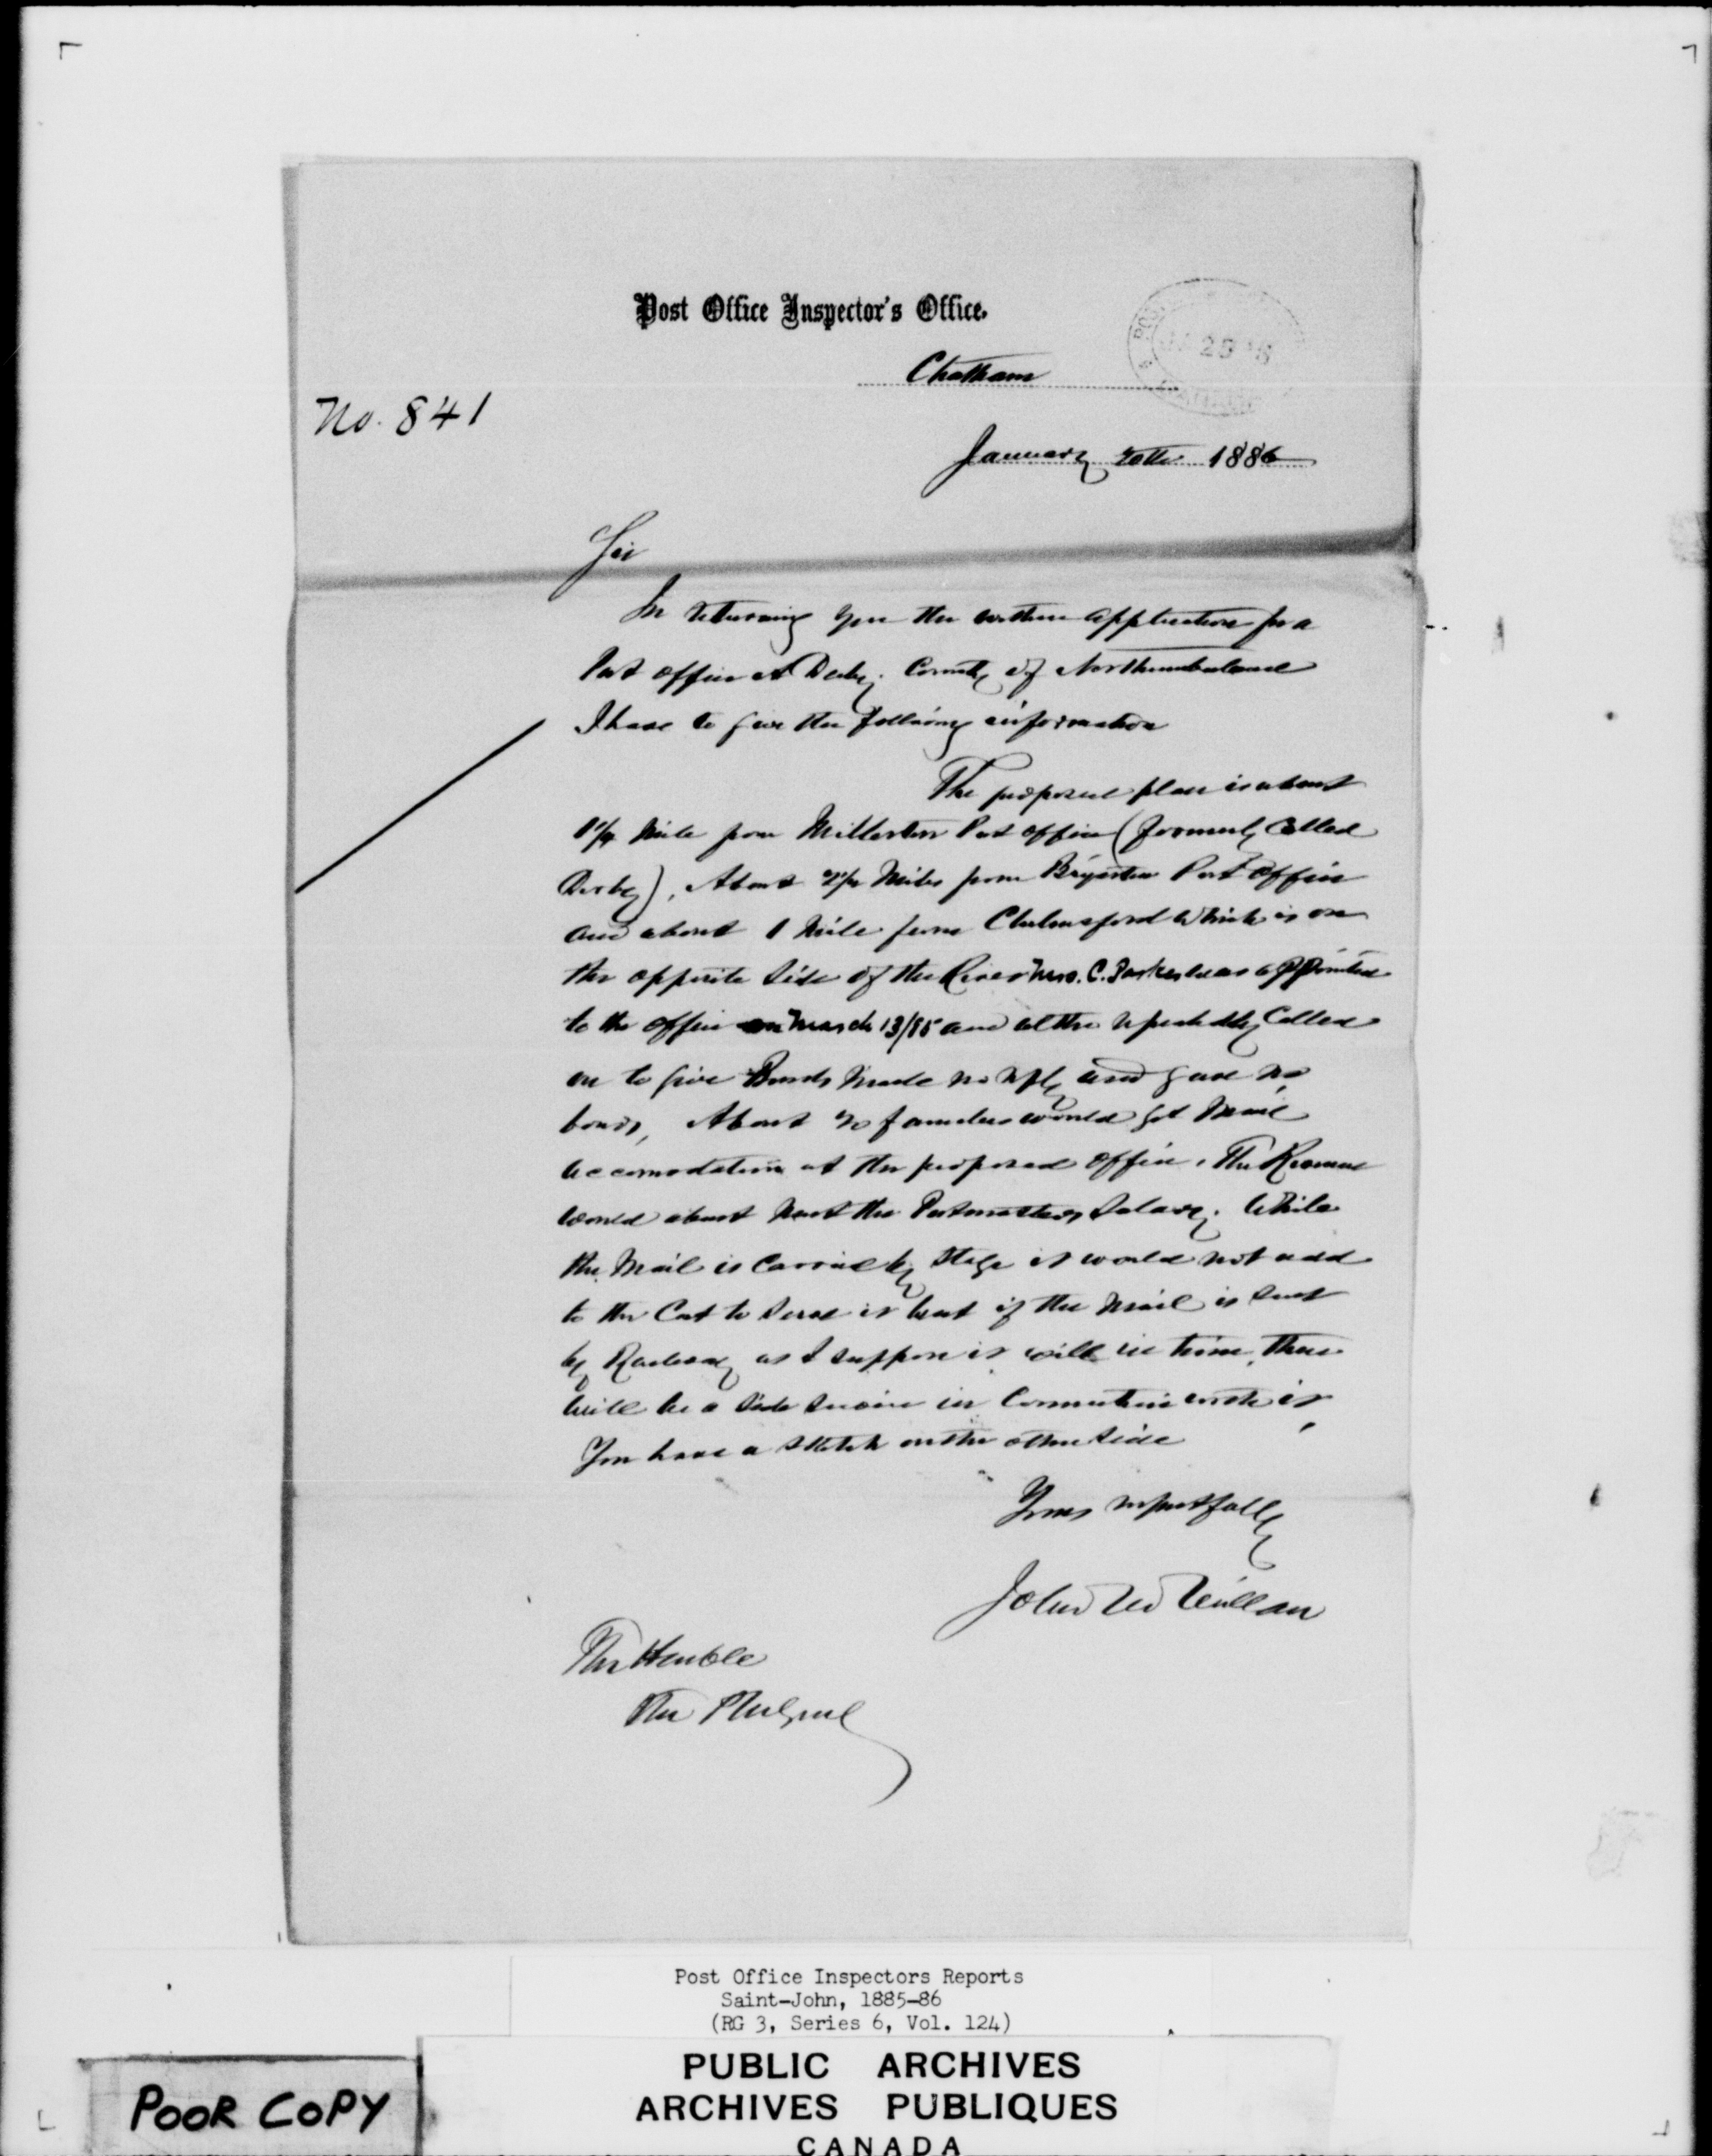 Post Office Inspector's Office.
Chatham
No. 841
January 20th 1886
Sir
In returning you the within application for a
Post office at Derby. County of Northumberland
I have to give the following information
The proposed place is about
1 1/4 Mile from Millerton Post office (formerly Called
Derby), About 2 1/2 Miles from Bryenton Post Office
and about 1 Mile from Chelmsford which is on
the opposite side of the River Mrs. C. Parker was appointed
to the office on March 13/85 and altho repeatedly Called
on to give Bonds made no reply and gave no
bonds, About 20 families would get Mail
accomodation at the proposed office. The Revenue
would about meet the Postmasters Salary. While
the Mail is Carried by Stage it would not add
to the Cost to serve it but if the Mail is sent
by Railway as I suppose it will in time, there
will be a side service in Connection with it,
You have a Sketch on the other side
Yours respectfully
John McMillan
The Honble
The PMGeneral
Post Office Inspectors Reports
Saint-John, 1885-86
(RG 3, Series 6, Vol. 124)
PUBLIC ARCHIVES
ARCHIVES PUBLIQUES
CANADA
POOR COPY